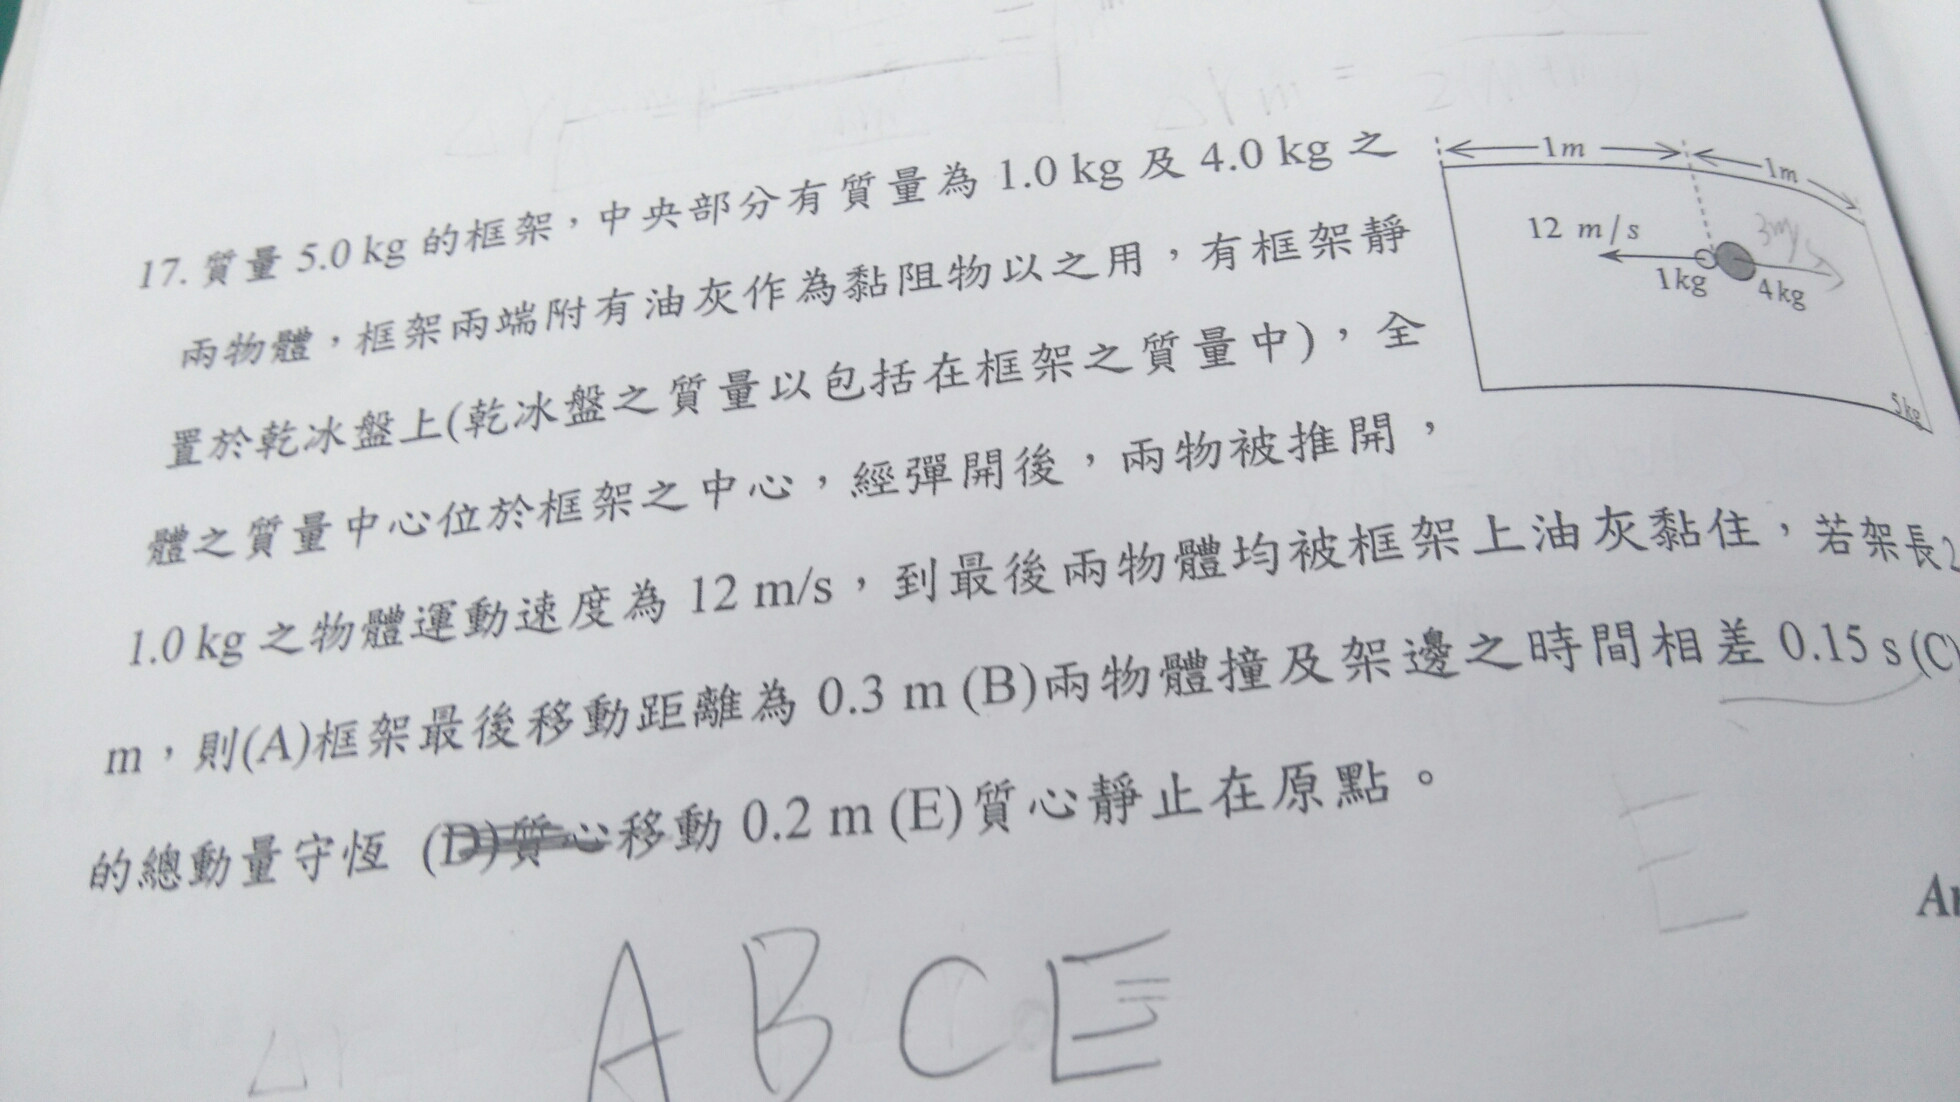 17. 質量 5.0 kg 的框架，中央部分有質量為 1.0 kg 及 4.0 kg 之
兩物體，框架兩端附有油灰作為黏阻物以之用，有框架靜
置於乾冰盤上(乾冰盤之質量以包括在框架之質量中)，全
體之質量中心位於框架之中心，經彈開後，兩物被推開，
1.0 kg 之物體運動速度為 12 m/s，到最後兩物體均被框架上油灰黏住，若架長2
m，則(A)框架最後移動距離為 0.3 m (B)兩物體撞及架邊之時間相差 0.15 s (C)
的總動量守恆 (D)質心移動 0.2 m (E)質心靜止在原點。
1m
1m
12 m/s
3m/s
1kg
4kg
5kg
A B C E
E